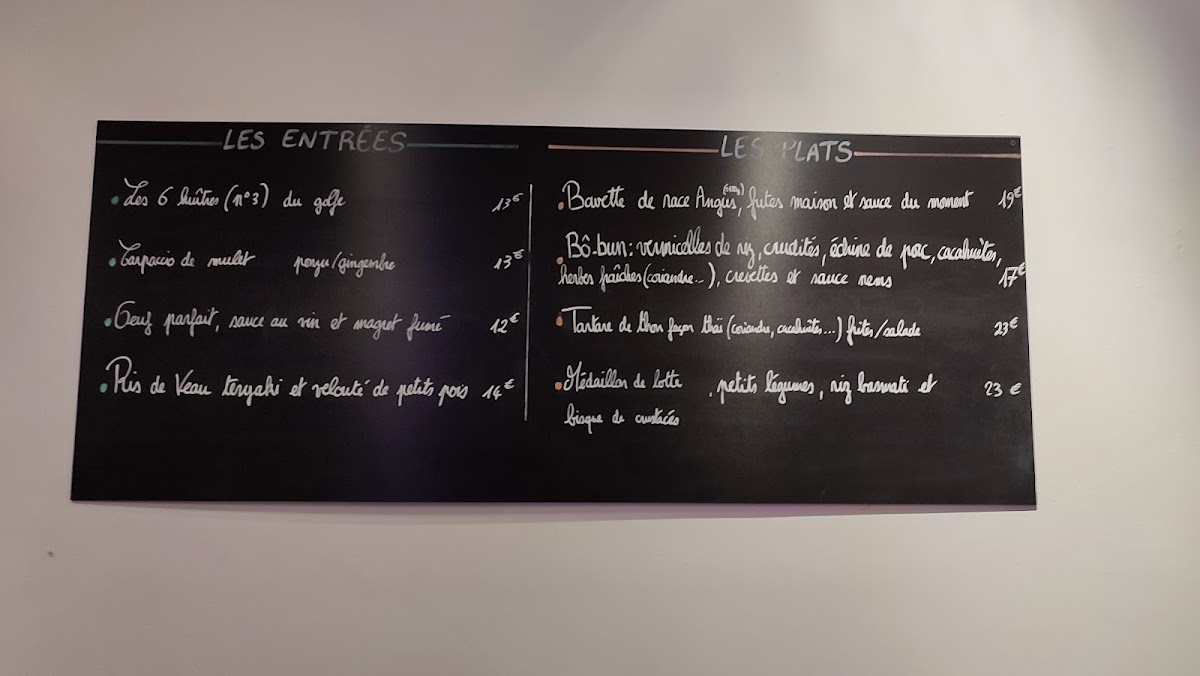 LES ENTRÉES
Les 6 huîtres (n°3) du golfe 13€
Carpaccio de mulet ponzu/gingembre 13€
Oeuf parfait, sauce au vin et magret fumé 12€
Ris de Veau teryaki et velouté de petits pois 14€
LES PLATS
Bavette de race Angus, frites maison et sauce du moment 19€
Bô-bun: vermicelles de riz, crudités, échine de porc, cacahuètes,
herbes fraîches (coriandre...), crevettes et sauce nems 17€
Tartare de thon façon thaï (coriandre, cacahuètes...) frites/salade 23€
Médaillon de lotte, petits légumes, riz basmati et 23 €
bisque de crustacés